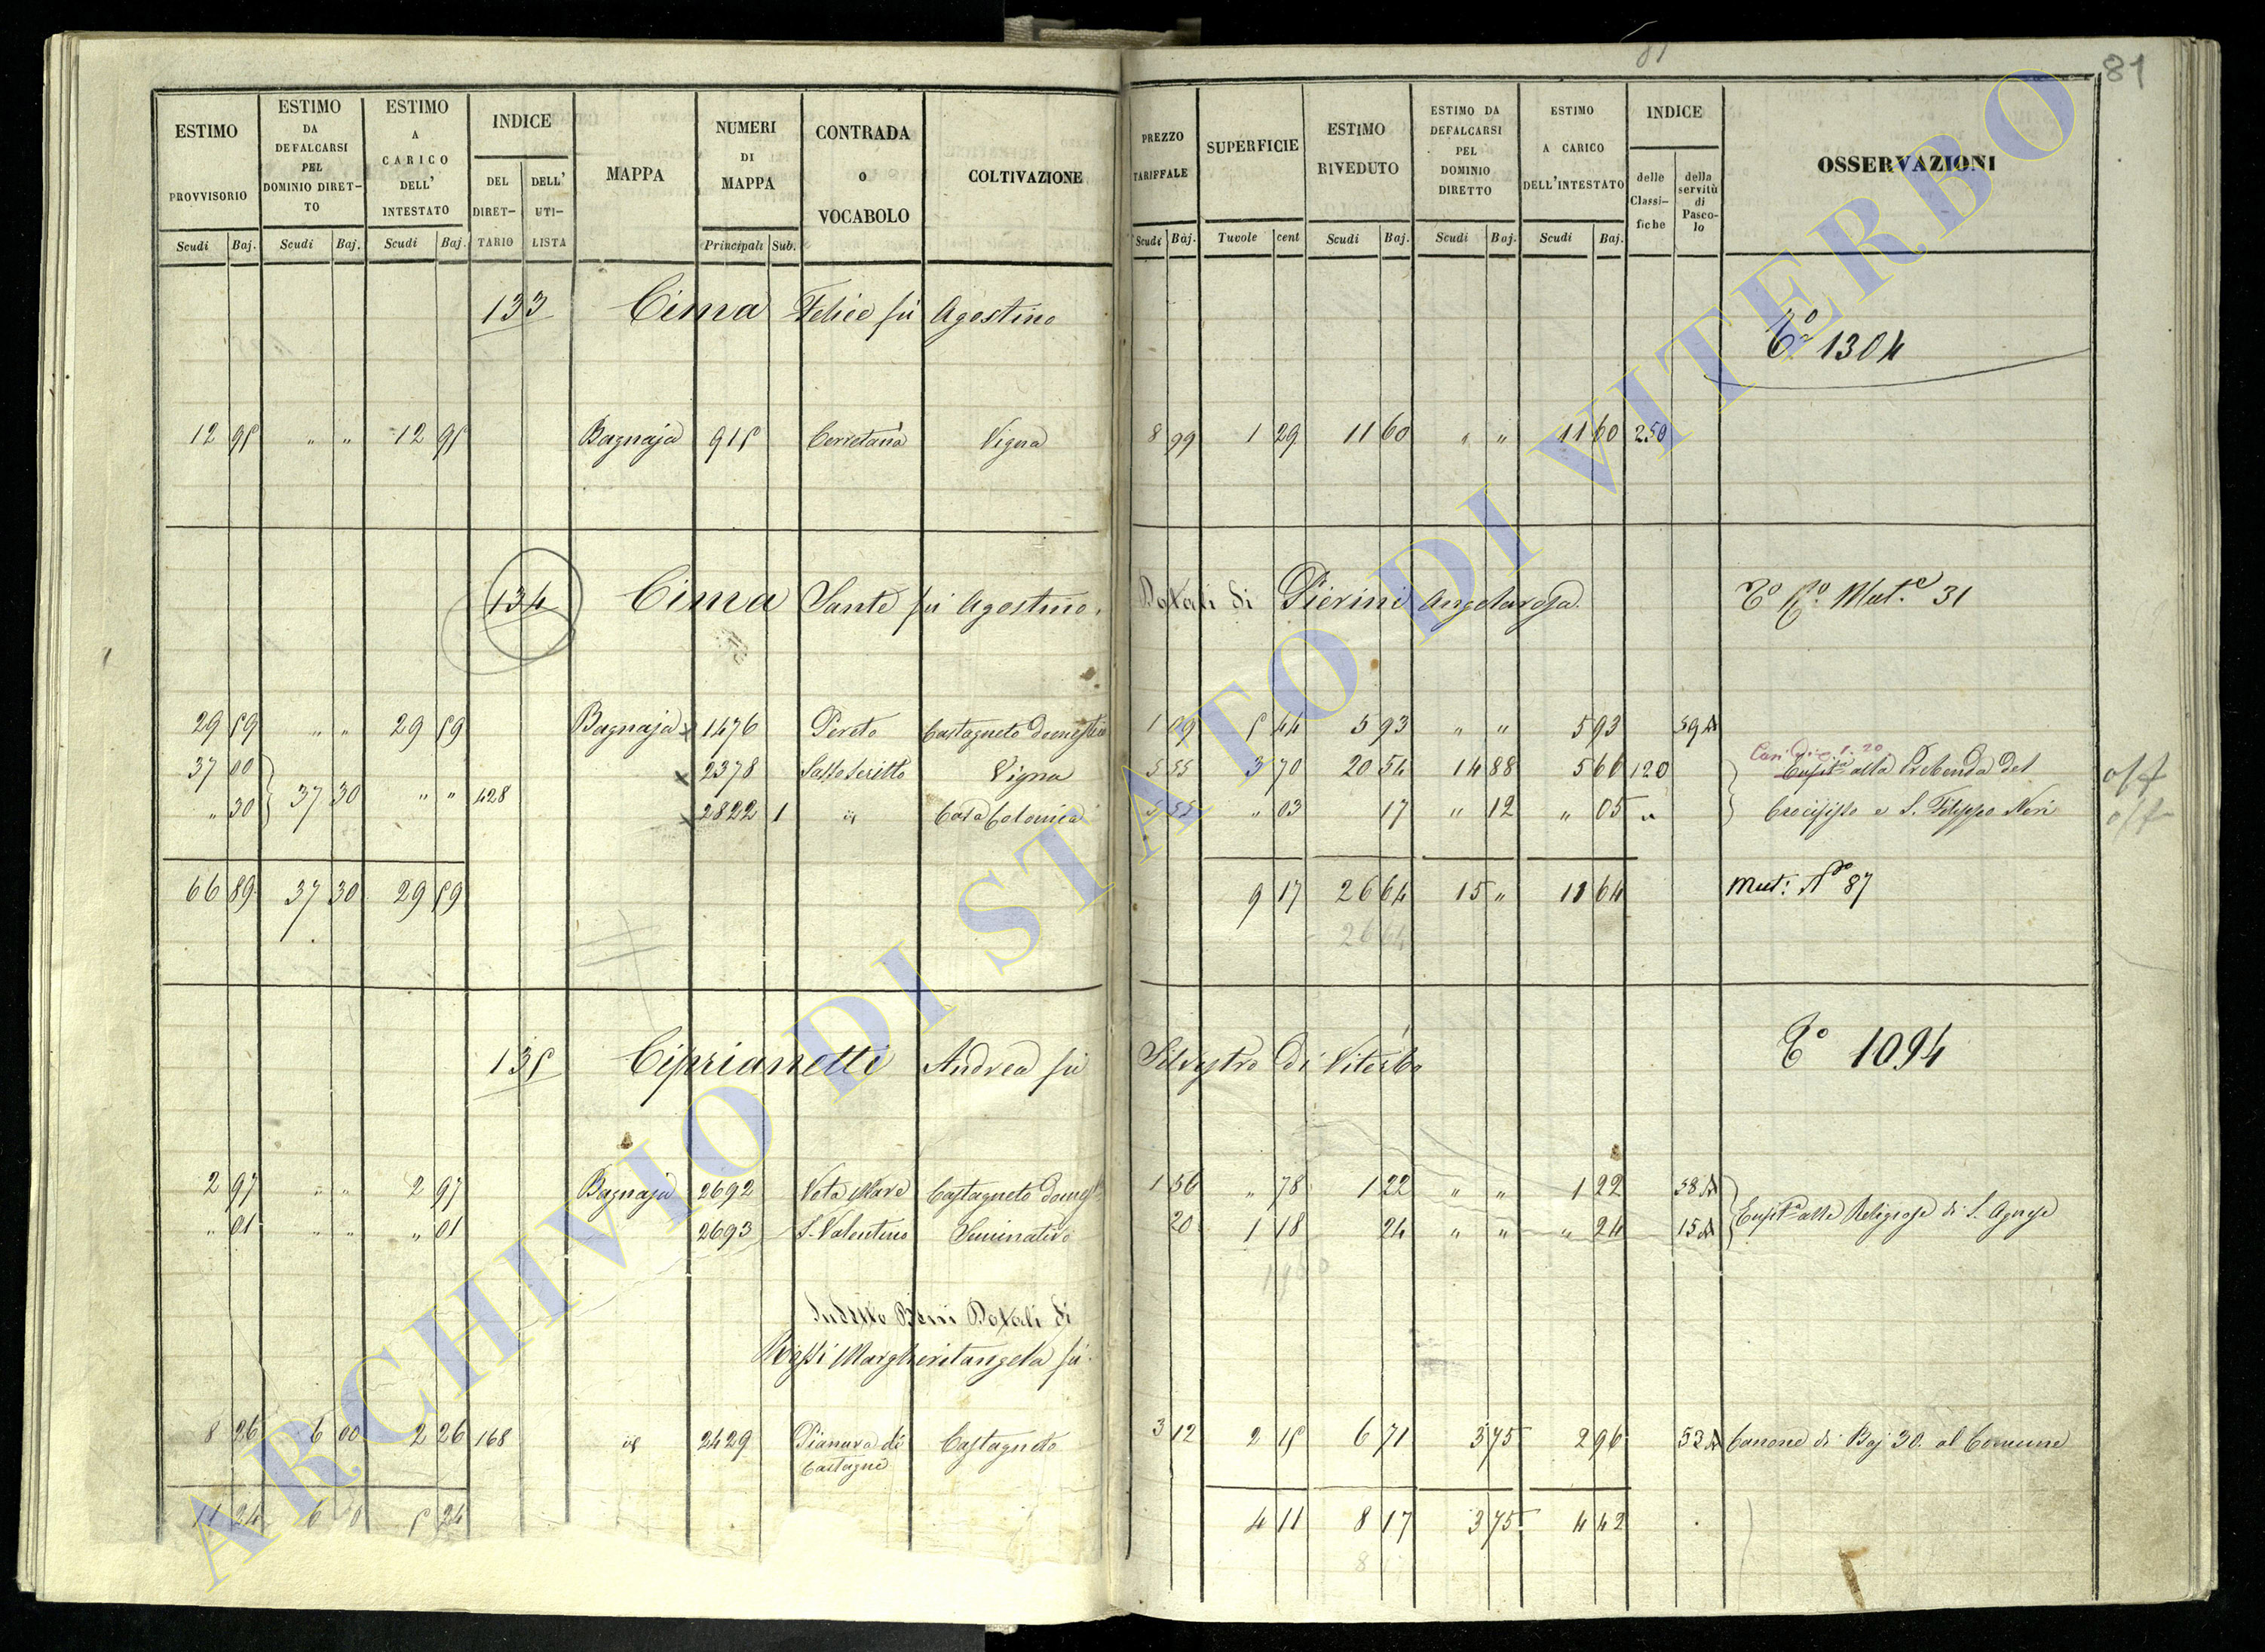 81
81
ESTIMO PROVVISORIO
ESTIMO DA DEFALCARSI PEL DOMINIO DIRET- TO
ESTIMO A CARICO DELL' INTESTATO
INDICE
DEL DIRET- TARIO
DELL' UTI- LISTA
MAPPA
NUMERI DI MAPPA
CONTRADA O VOCABOLO
COLTIVAZIONE
PREZZO TARIFFALE
SUPERFICIE
ESTIMO RIVEDUTO
ESTIMO DA DEFALCARSI PEL DOMINIO DIRETTO
ESTIMO A CARICO DELL'INTESTATO
INDICE
delle Classi- fiche
della servitù di Pasco- lo
OSSERVAZIONI
Scudi Baj. Scudi Baj. Scudi Baj. Principali Sub. Scudi Baj. Tavole cent Scudi Baj. Scudi Baj. Scudi Baj.
133 Cima Felice fu Agostino
Co 1304
12 95 " " 12 95 Bagnaja 915 Cerretana Vigna 8 99 1 29 11 60 " " 11 60 250
134 Cima Sante fu Agostino. Dotali di Pierini Angelarosa. Mut.e 31
29 59 " " 29 59 Bagnaja 1476 Pereto Castagneto domestico 1 09 5 44 5 93 " " 5 93 59 A
37 00 2378 Sasso Scritto Vigna 5 55 3 70 20 54 14 88 5 66 120 alla Prebenda del off
" 30 37 30 " " 428 2822 1 id Casa Colonica 5 55 " 03 17 " 12 " 05 " Crocifisso e S. Filippo Neri off
66 89 37 30 29 59 9 17 26 64 15 " 11 64 Mut: No 87
26 64
135 Ciprianetti Andrea fu Silvestro di Viterbo
Co 1094
2 97 " " 2 97 Bagnaja 2692 Nota Mare Castagneto domes 1 56 " 78 1 22 " " 1 22 58 A
" 01 " " " 01 2693 S. Valentino Seminativo 20 1 18 24 " " " 24 15 A alle Religiose di S. Agnese
Sudetto Beni Dotali di
Margheritangela fu
8 26 6 00 2 26 168 id 2429 Pianura di Castagno Castagneto 3 12 2 15 6 71 3 75 2 96 53 A Canone di Baj 30. al Comune
11 24 6 0 5 24 4 11 8 17 3 75 4 42
ARCHIVIO DI STATO DI VITERBO